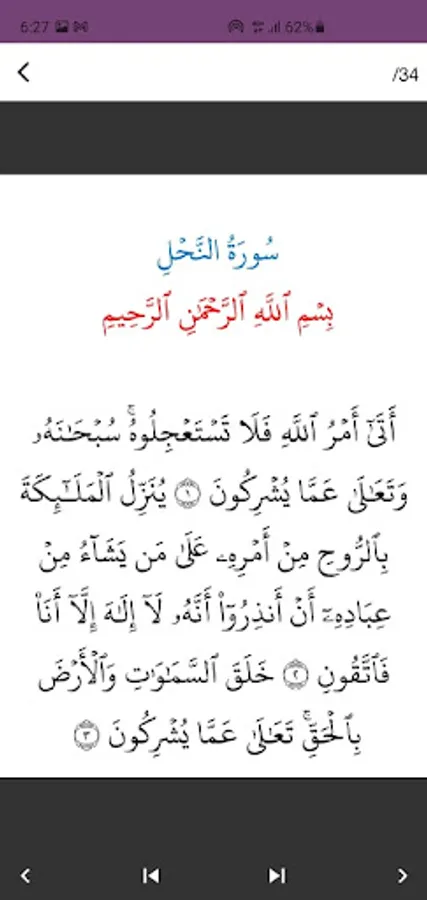 6:27 62%
/34
سُورَةُ النَّحْلِ
بِسْمِ ٱللَّهِ ٱلرَّحْمَٰنِ ٱلرَّحِيمِ
أَتَىٰٓ أَمْرُ ٱللَّهِ فَلَا تَسْتَعْجِلُوهُۚ سُبْحَٰنَهُۥ
وَتَعَٰلَىٰ عَمَّا يُشْرِكُونَ ١ يُنَزِّلُ ٱلْمَلَٰٓئِكَةَ
بِٱلرُّوحِ مِنْ أَمْرِهِۦ عَلَىٰ مَن يَشَآءُ مِنْ
عِبَادِهِۦٓ أَنْ أَنذِرُوٓا۟ أَنَّهُۥ لَآ إِلَٰهَ إِلَّآ أَنَا۠
فَٱتَّقُونِ ٢ خَلَقَ ٱلسَّمَٰوَٰتِ وَٱلْأَرْضَ
بِٱلْحَقِّۚ تَعَٰلَىٰ عَمَّا يُشْرِكُونَ ٣